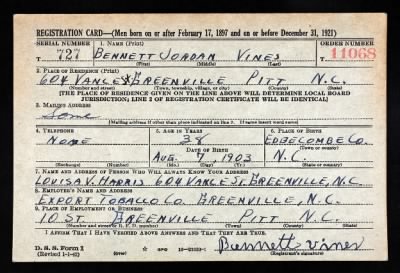 REGISTRATION CARD—(Men born on or after February 17, 1897 and on or before December 31, 1921)
SERIAL NUMBER 1. NAME (Print) ORDER NUMBER
T 727 BENNETT JORDAN VINES T 11068
(First) (Middle) (Last)
2. PLACE OF RESIDENCE (Print)
604 VANCE GREENVILLE PITT N.C.
(Number and street) (Town, township, village, or city) (County) (State)
[THE PLACE OF RESIDENCE GIVEN ON THE LINE ABOVE WILL DETERMINE LOCAL BOARD
JURISDICTION; LINE 2 OF REGISTRATION CERTIFICATE WILL BE IDENTICAL]
3. MAILING ADDRESS
Same
[Mailing address if other than place indicated on line 2. If same insert word same]
4. TELEPHONE 5. AGE IN YEARS 6. PLACE OF BIRTH
NONE 38 EDGECOMBE CO.
DATE OF BIRTH (Town or county)
AUG. 7, 1903 N.C.
(Exchange) (Number) (Mo.) (Day) (Yr.) (State or country)
7. NAME AND ADDRESS OF PERSON WHO WILL ALWAYS KNOW YOUR ADDRESS
LOUISA V. HARRIS 604 VANCE ST. GREENVILLE, N.C.
8. EMPLOYER'S NAME AND ADDRESS
EXPORT TOBACCO CO. GREENVILLE, N.C.
9. PLACE OF EMPLOYMENT OR BUSINESS
10 ST. GREENVILLE PITT N.C.
(Number and street or R. F. D. number) (Town) (County) (State)
I AFFIRM THAT I HAVE VERIFIED ABOVE ANSWERS AND THAT THEY ARE TRUE.
D. S. S. Form 1
(Revised 1-1-42) GPO 16—21630-1 Bennett Vines
(Registrant's signature)